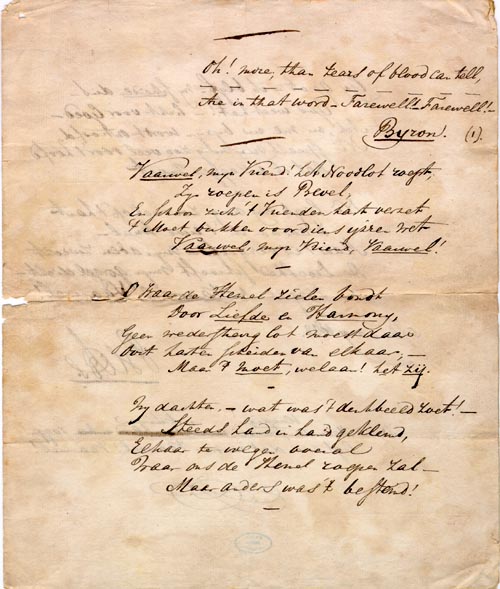 Oh! more, than tears of blood can tell,
Are in that word – Farewell! – Farewell! –
Byron. (1).
Vaarwel, mijn Vriend! het Noodlot roept,
Zijn roepen is Bevel,
En schoon zich 't Vrienden hart verzet
't Moet bukken voor diens ijzren wet
Vaarwel, mijn Vriend, Vaarwel!
O waar de Hemel zielen bondt
Door Liefde en Harmony,
Geen wederstrevig lot moest daar
Ooit harten scheiden van elkaar, –
Maar 't moet, welaan! het zij.
Wij dachten, – wat was 't denkbeeld zoet! –
Steeds hand in hand geklemd,
Elkaar te volgen overal
Waar ons de Hemel roepen zal –
Maar anders was 't bestemd!